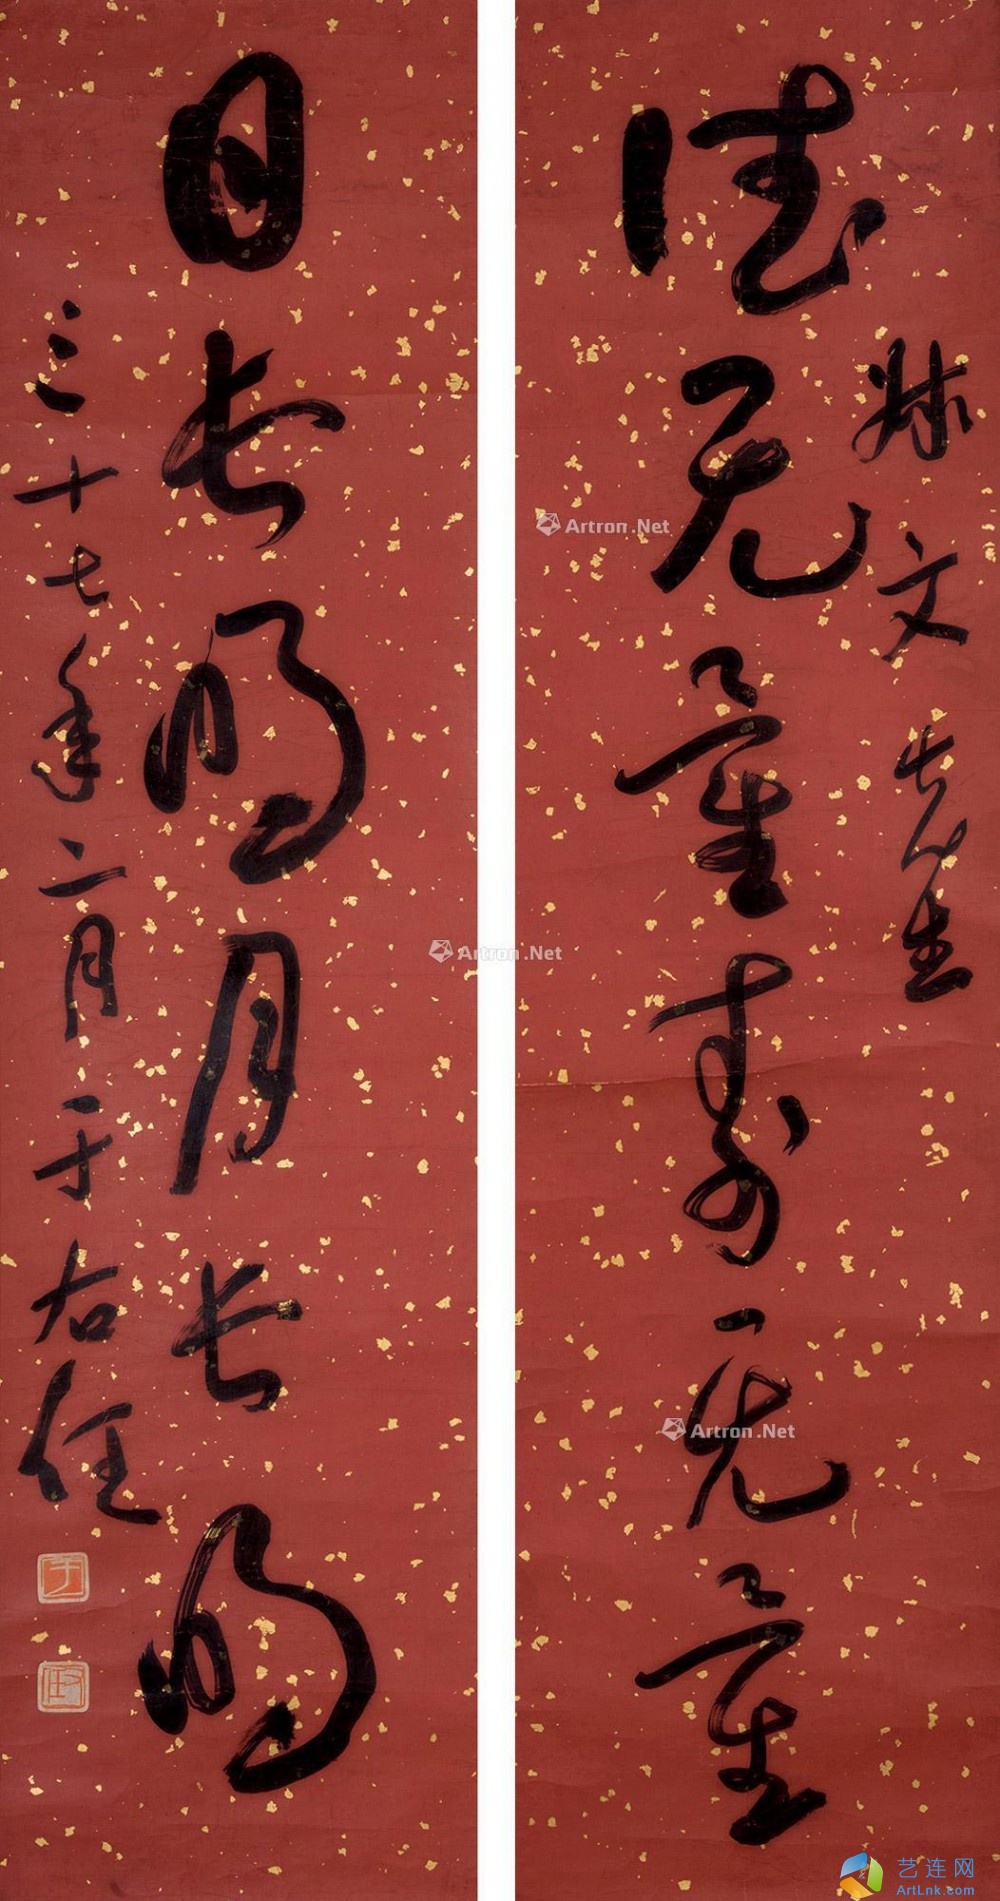 文先生
德无量壽无量
日長明月長明
三十七年二月于右任
Artron.Net
Artron.Net
Artron.Net
艺连网
ArtLnk.com